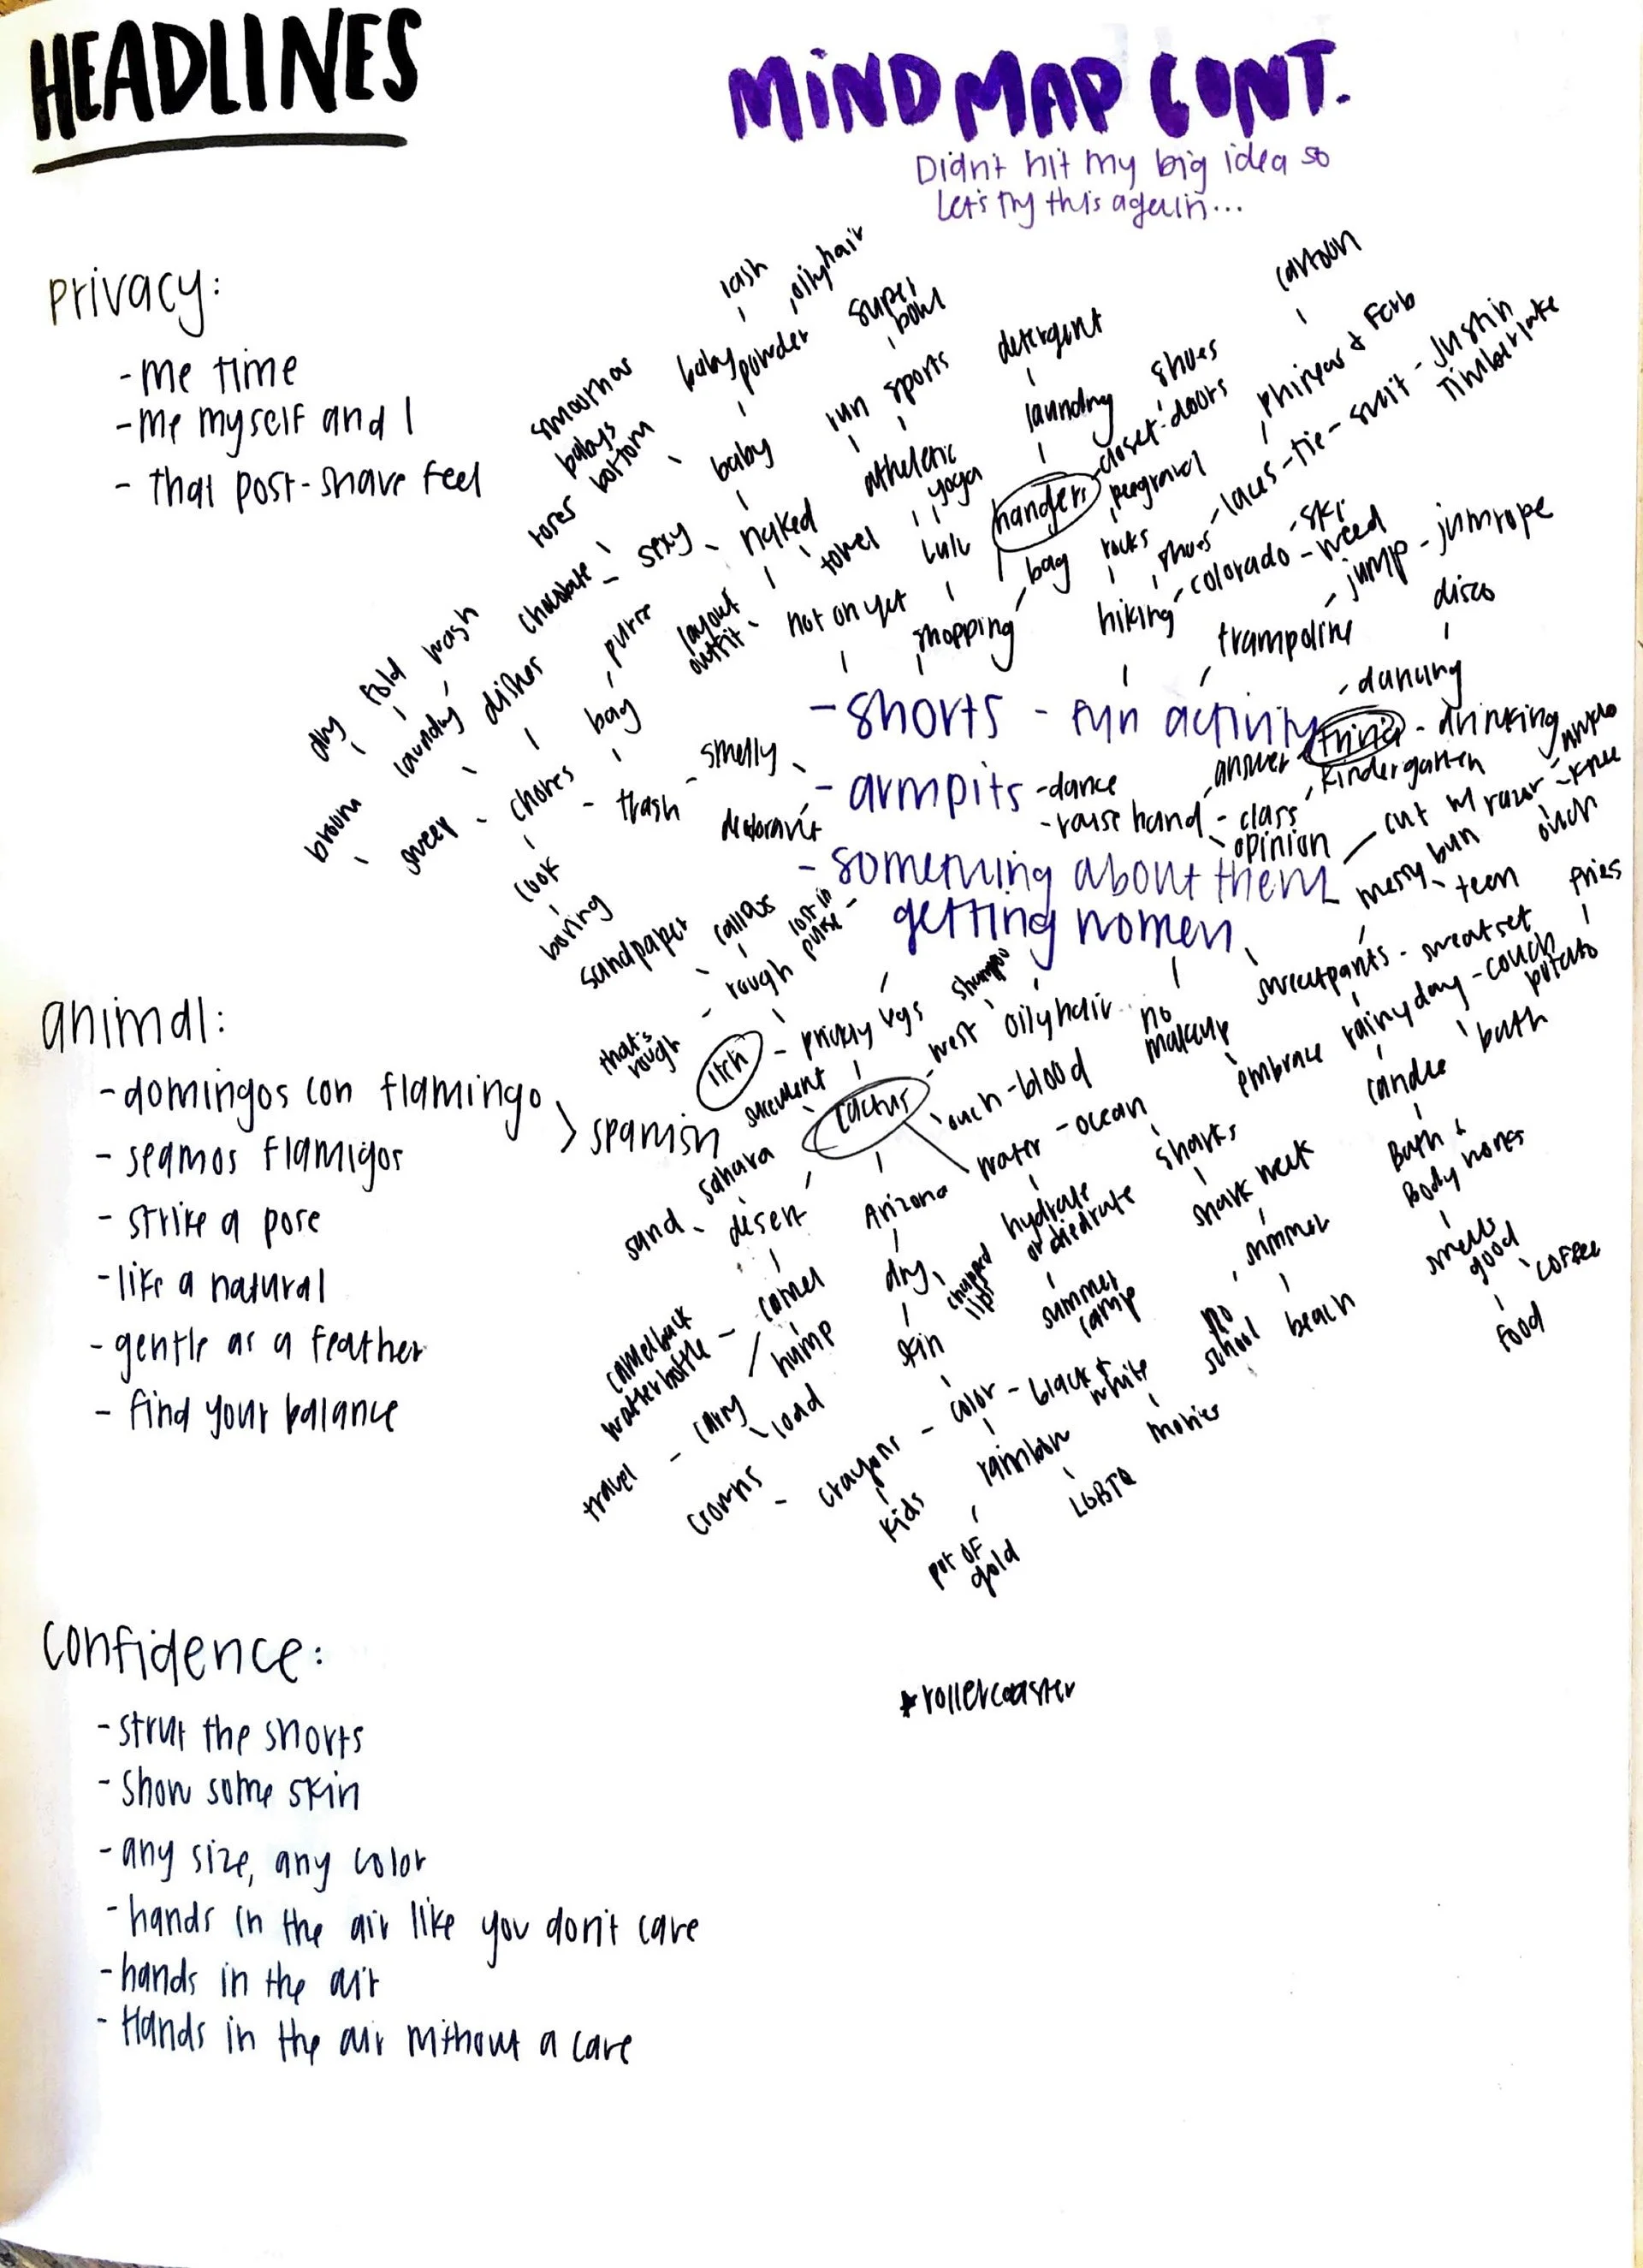 HEADLINES
privacy:
- me time
- me myself and I
- that post-shave feel
animal:
- domingos con flamingo
- seamos flamigos
> spanish
- strike a pose
- like a natural
- gentle as a feather
- find your balance
confidence:
- strut the shorts
- show some skin
- any size, any color
- hands in the air like you don't care
- hands in the air
- Hands in the air without a care
MIND MAP CONT.
Didn't hit my big idea so
let's try this again...
- shorts - fun activity
- armpits
- something about them
getting women
rash
oily hair
baby powder
super bowl
smooth as
babys bottom
baby
roses
chocolate
sexy
naked
towel
layout outfit
not on yet
run
sports
athletic
yoga
lulu
detergent
laundry
hanger
closet - doors
shoes
bag
shopping
cartoon
phineas & Ferb
rocks
shoes - laces - tie - suit - Justin Timberlake
hiking - colorado - weed
ski
trampoline
jump - jumrope
disco
dancing
drinking
dry
fold
wash
laundry
dishes
purse
bag
broom
sweep
chores
trash
smelly
cook
boring
- dance
- raise hand - class
answer
kindergarten
opinion
cut w razor
knee
ouch
messy bun
teen
fries
sandpaper
callous
lost in purse
rough
that's rough
itch
- prickly legs
shampoo
west
oily hair
no makeup
sweatpants - sweatset
embrace
rainy day - couch potato
candle
bath
Bath & Body Works
smells good
coffee
food
succulent
cactus
ouch - blood
water - ocean
sharks
shark week
summer
no school
beach
sahara
sand
desert
Arizona
dry
chapped lips
hydrate
summer camp
camel
hump
camelback
waterbottle
carry
load
travel
skin
color - black & white
movies
crayons
kids
rainbow
LGBTQ
pot of gold
*rollercoaster